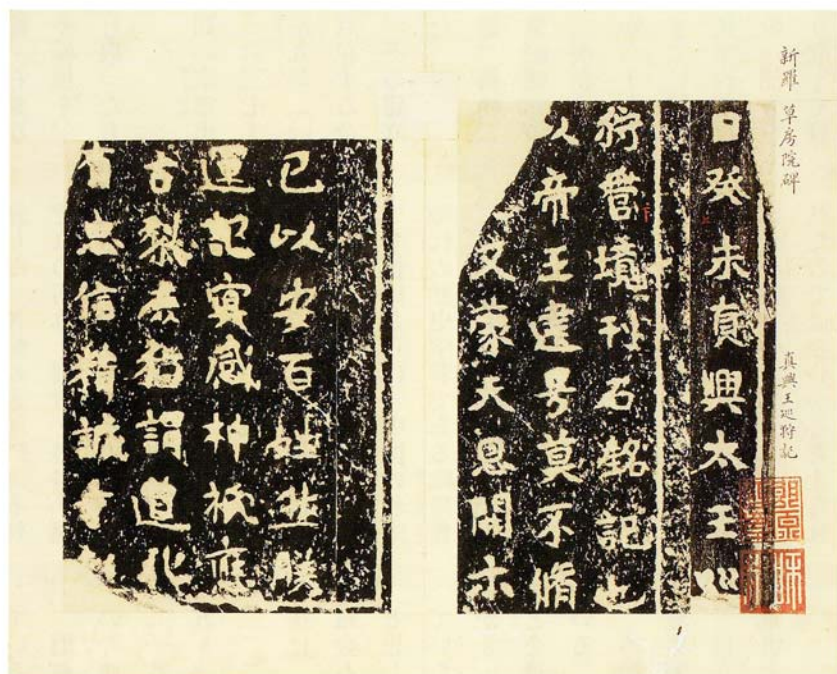 新羅 草房院碑
真興王廵狩記
日癸未真興太王巡
狩管境刊石銘記也
以帝王建号莫不脩
又蒙天恩開示
己以安百姓然朕
運記冥感神祇應
古黎庶猶謂道化
有忠信精誠才